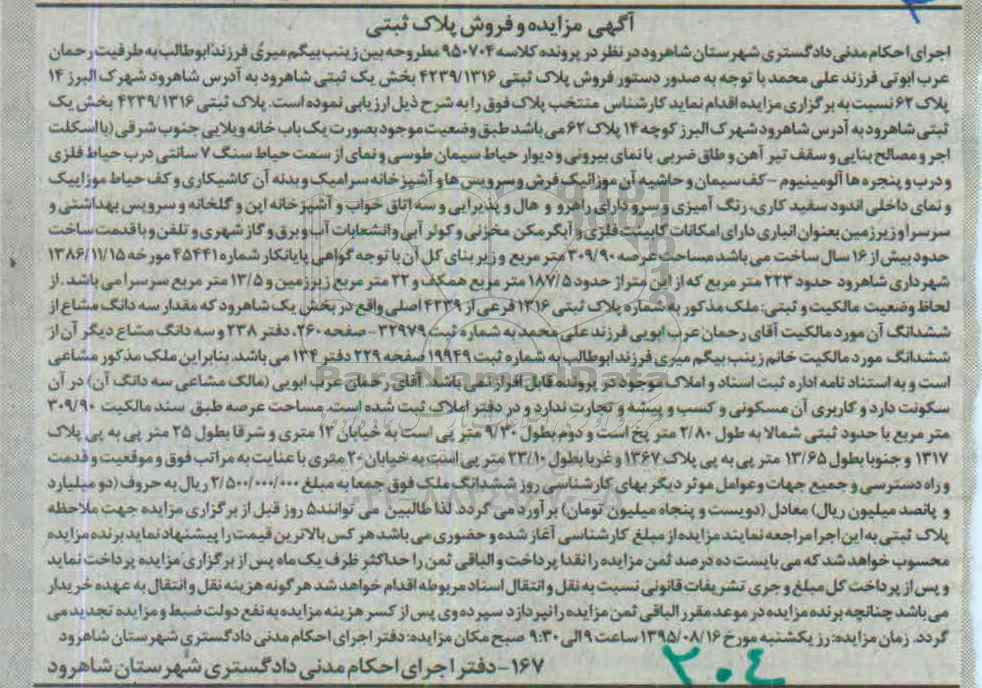 آگهی مزایده و فروش پلاک ثبتی
اجرای احکام مدنی دادگستری شهرستان شاهرود در نظر در پرونده کلاسه ۹۵۰۷۰۴ مطروحه بین زینب بیگم میری فرزند ابوطالب به طرفیت رحمان
عرب ابوئی فرزند علی محمد با توجه به صدور دستور فروش پلاک ثبتی ۴۲۳۹/۱۳۱۶ بخش یک ثبتی شاهرود به آدرس شاهرود شهرک البرز ۱۴
پلاک ۶۲ نسبت به برگزاری مزایده اقدام نماید کارشناس منتخب پلاک فوق را به شرح ذیل ارزیابی نموده است. پلاک ثبتی ۴۲۳۹/۱۳۱۶ بخش یک
ثبتی شاهرود به آدرس شاهرود شهرک البرز کوچه ۱۴ پلاک ۶۲ می باشد طبق وضعیت موجود بصورت یک باب خانه ویلایی جنوب شرقی (با اسکلت
اجر و مصالح بنایی و سقف تیر آهن و طاق ضربی با نمای بیرونی و دیوار حیاط سیمان طوسی و نمای از سمت حیاط سنگ ۷ سانتی درب حیاط فلزی
و درب و پنجره ها آلومینیوم – کف سیمان و حاشیه آن موزائیک فرش و سرویس ها و آشپزخانه سرامیک و بدنه آن کاشیکاری و کف حیاط موزاییک
و نمای داخلی اندود سفید کاری، رنگ آمیزی و سرو دارای راهرو و هال و پذیرایی و سه اتاق خواب و آشپزخانه اپن و گلخانه و سرویس بهداشتی و
سرسرا و زیرزمین بعنوان انباری دارای امکانات کابینت فلزی و آبگرمکن مخزنی و کولر آبی وانشعابات آب و برق و گاز شهری و تلفن و با قدمت ساخت
حدود بیش از ۱۶ سال ساخت می باشد مساحت عرصه ۳۰۹/۹۰ متر مربع و زیر بنای کل آن با توجه گواهی پایانکار شماره ۴۵۴۴۱ مورخه ۱۳۸۶/۱۱/۱۵
شهرداری شاهرود حدود ۲۲۳ متر مربع که از این متراژ حدود ۱۸۷/۵ متر مربع همکف و ۲۲ متر مربع زیرزمین و ۱۳/۵ متر مربع سرسرا می باشد . از
لحاظ وضعیت مالکیت و ثبتی: ملک مذکور به شماره پلاک ثبتی ۱۳۱۶ فرعی از ۴۲۳۹ اصلی واقع در بخش یک شاهرود که مقدار سه دانگ مشاع از
ششدانگ آن مورد مالکیت آقای رحمان عرب ابویی فرزند علی محمد به شماره ثبت ۳۲۹۷۹ – صفحه ۲۶۰، دفتر ۲۳۸ و سه دانگ مشاع دیگر آن از
ششدانگ مورد مالکیت خانم زینب بیگم میری فرزند ابوطالب به شماره ثبت ۱۹۹۴۹ صفحه ۲۲۹ دفتر ۱۳۴ می باشد. بنابراین ملک مذکور مشاعی
است و به استناد نامه اداره ثبت اسناد و املاک موجود در پرونده قابل افراز نمی باشد آقای رحمان عرب ابویی (مالک مشاعی سه دانگ آن) در آن
سکونت دارد و کاربری آن مسکونی و کسب و پیشه و تجارت ندارد و در دفتر املاک ثبت شده است. مساحت عرصه طبق سند مالکیت ۳۰۹/۹۰
متر مربع با حدود ثبتی شمالا به طول ۲/۸۰ متر پخ است و دوم بطول ۹/۳۰ متر پی است به خیابان ۱۲ متری و شرقا بطول ۲۵ متر پی به پی پلاک
۱۳۱۷ و جنوبا بطول ۱۳/۶۵ متر پی به پی پلاک ۱۳۶۷ و غربا بطول ۲۳/۱۰ متر پی است به خیابان ۲۰ متری با عنایت به مراتب فوق و موقعیت و قدمت
و راه دسترسی و جمیع جهات و عوامل موثر دیگر بهای کارشناسی روز ششدانگ ملک فوق جمعا به مبلغ ۲/۵۰۰/۰۰۰/۰۰۰ ریال به حروف (دو میلیارد
و پانصد میلیون ریال) معادل (دویست و پنجاه میلیون تومان) برآورد می گردد. لذا طالبین می توانند ۵ روز قبل از برگزاری مزایده جهت ملاحظه
پلاک ثبتی به این اجرا مراجعه نمایند مزایده از مبلغ کارشناسی آغاز شده و حضوری می باشد هر کس بالاترین قیمت را پیشنهاد نماید برنده مزایده
محسوب خواهد شد که می بایست ده درصد ثمن مزایده را نقدا پرداخت و الباقی ثمن را حداکثر ظرف یک ماه پس از برگزاری مزایده پرداخت نماید
و پس از پرداخت کل مبلغ و جری تشریفات قانونی نسبت به نقل و انتقال اسناد مربوطه اقدام خواهد شد هر گونه هزینه نقل و انتقال به عهده خریدار
می باشد چنانچه برنده مزایده در موعد مقرر الباقی ثمن مزایده را نپردازد سپرده وی پس از کسر هزینه مزایده به نفع دولت ضبط و مزایده تجدید می
گردد. زمان مزایده: رز یکشنبه مورخ ۱۳۹۵/۰۸/۱۶ ساعت ۹ الی ۹:۳۰ صبح مکان مزایده: دفتر اجرای احکام مدنی دادگستری شهرستان شاهرود
۱۶۷ – دفتر اجرای احکام مدنی دادگستری شهرستان شاهرود
۲۰۴
ParsNamadData